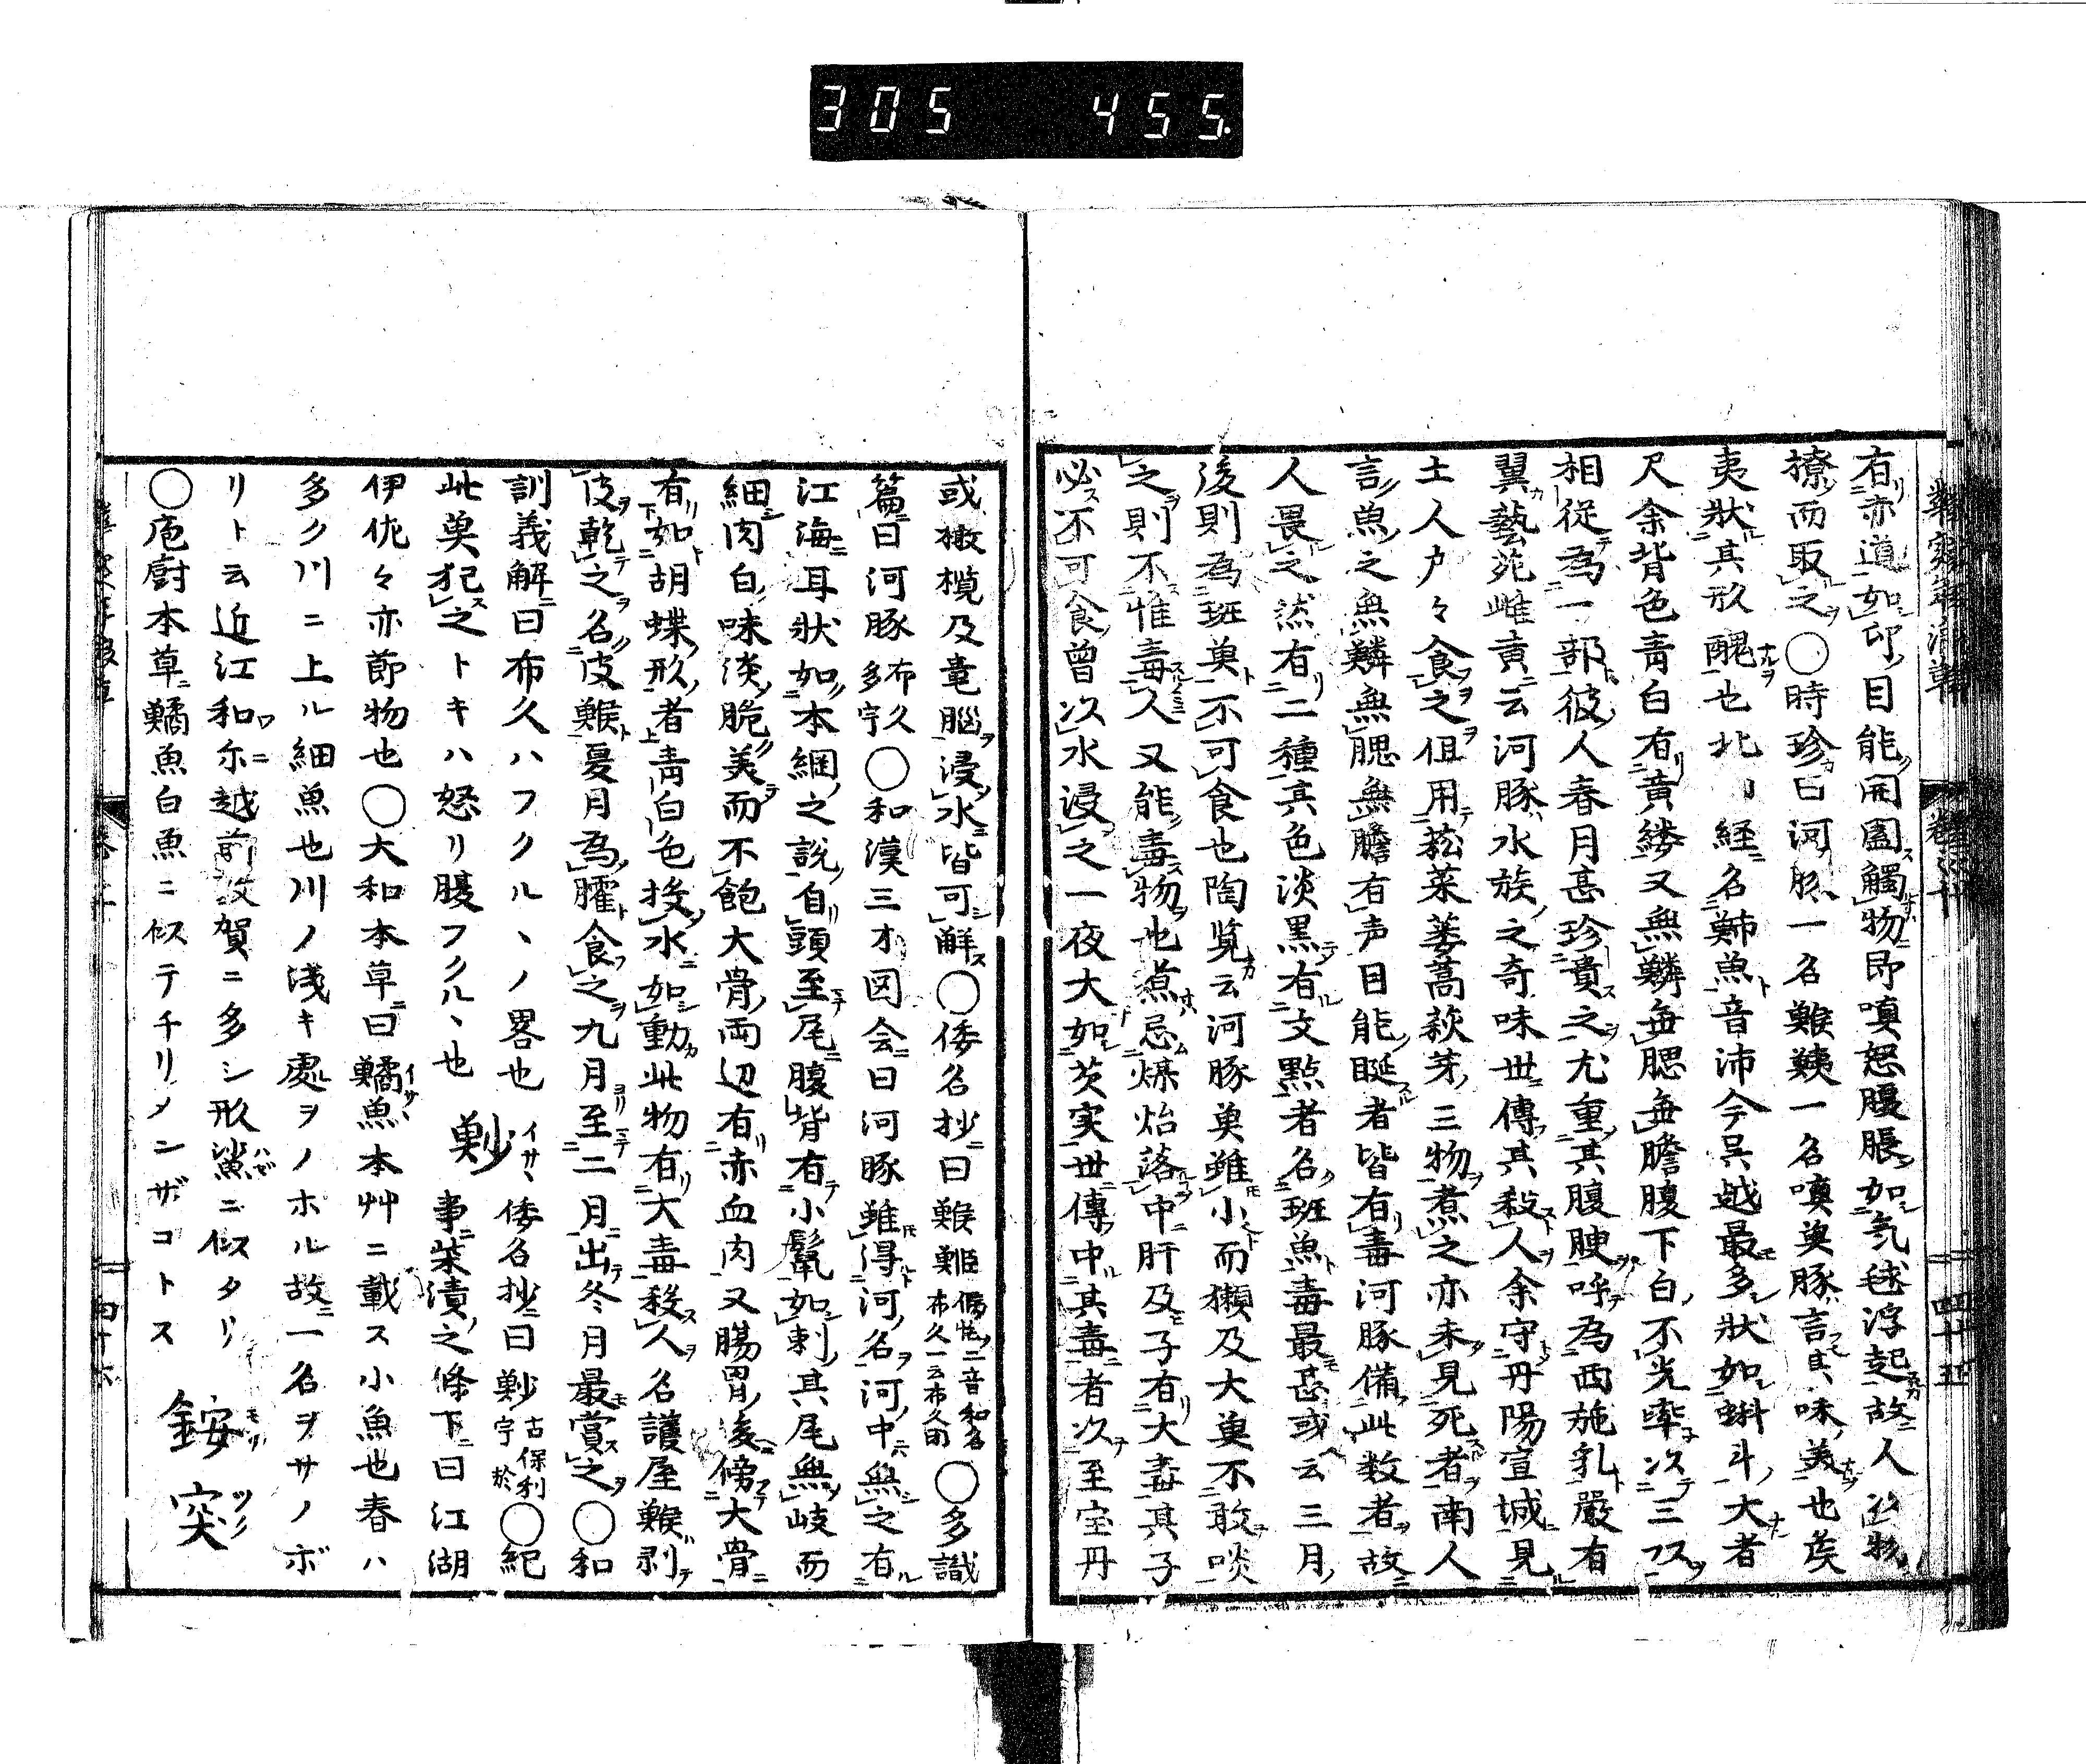 305 455.
有亦道如印目能開闔觸物即嗔怒腹脹如気毬浮起故人
撩而取之〇時珍曰河豚一名鯸鮧一名嗔魚豚言其味美也侯
夷狀其形醜也北山経名䰽魚音沛今呉越最多狀如蝌斗大者
尺余背色青白有黄縷又無鱗無腮無膽腹下白不光率以三
相従為一部彼人春月甚珍貴之尤重其腹腴呼為西施乳嚴有
翼藝苑雌黄云河豚水族之奇味世傳其殺人余守丹陽宣城見
土人戸々食之但用菘菜蔞蒿荻芽三物煮之亦未見死者南人
言魚之無鱗無腮無膽有声目能眨者皆有毒河豚備此数者故
人畏之然有二種其色淡黒有文點者名班魚毒最甚或云三月
後則為班魚不可食也陶覧云河豚魚雖小而獺及大魚不敢啖
之則不惟毒人又能毒物也煮忌煤炲落中肝及子有大毒其子
必不可食曽以水浸之一夜大如芡実世傳中其毒者以至宝丹
或橄欖及竜腦浸水皆可解〇倭名抄曰鯸䱌布久一云布久閉〇多識
篇曰河豚布久多宇〇和漢三才図会曰河豚雖得河名河中無之有
江海耳狀如本綱之説自頭至尾腹背有小鬣如刺其尾無岐而
細肉白味淡脆美而不飽大骨両辺有赤血肉又腸胃後傍大骨
有如胡蝶形者青白色投水如動此物有大毒殺人名護屋鯸剥
皮乾之名皮鯸夏月為臛食之九月至二月出冬月最賞之〇和
訓義解曰布久ハフクルヽノ畧也 魦イサヽ 倭名抄曰魦〇紀
此魚犯之トキハ怒リ腹フクルヽ也 事柴漬之條下曰江湖
伊佐々亦節物也〇大和本草曰鱊魚本艸ニ載ス小魚也春ハ
多ク川ニ上ル細魚也川ノ浅キ處ヲノホル故一名ヲサノボ
リト云近江和尓越前敦賀ニ多シ形鯊ニ似タリ
〇庖厨本草鱊魚白魚ニ似テチリメンザコトス 銨モリ 突ツク